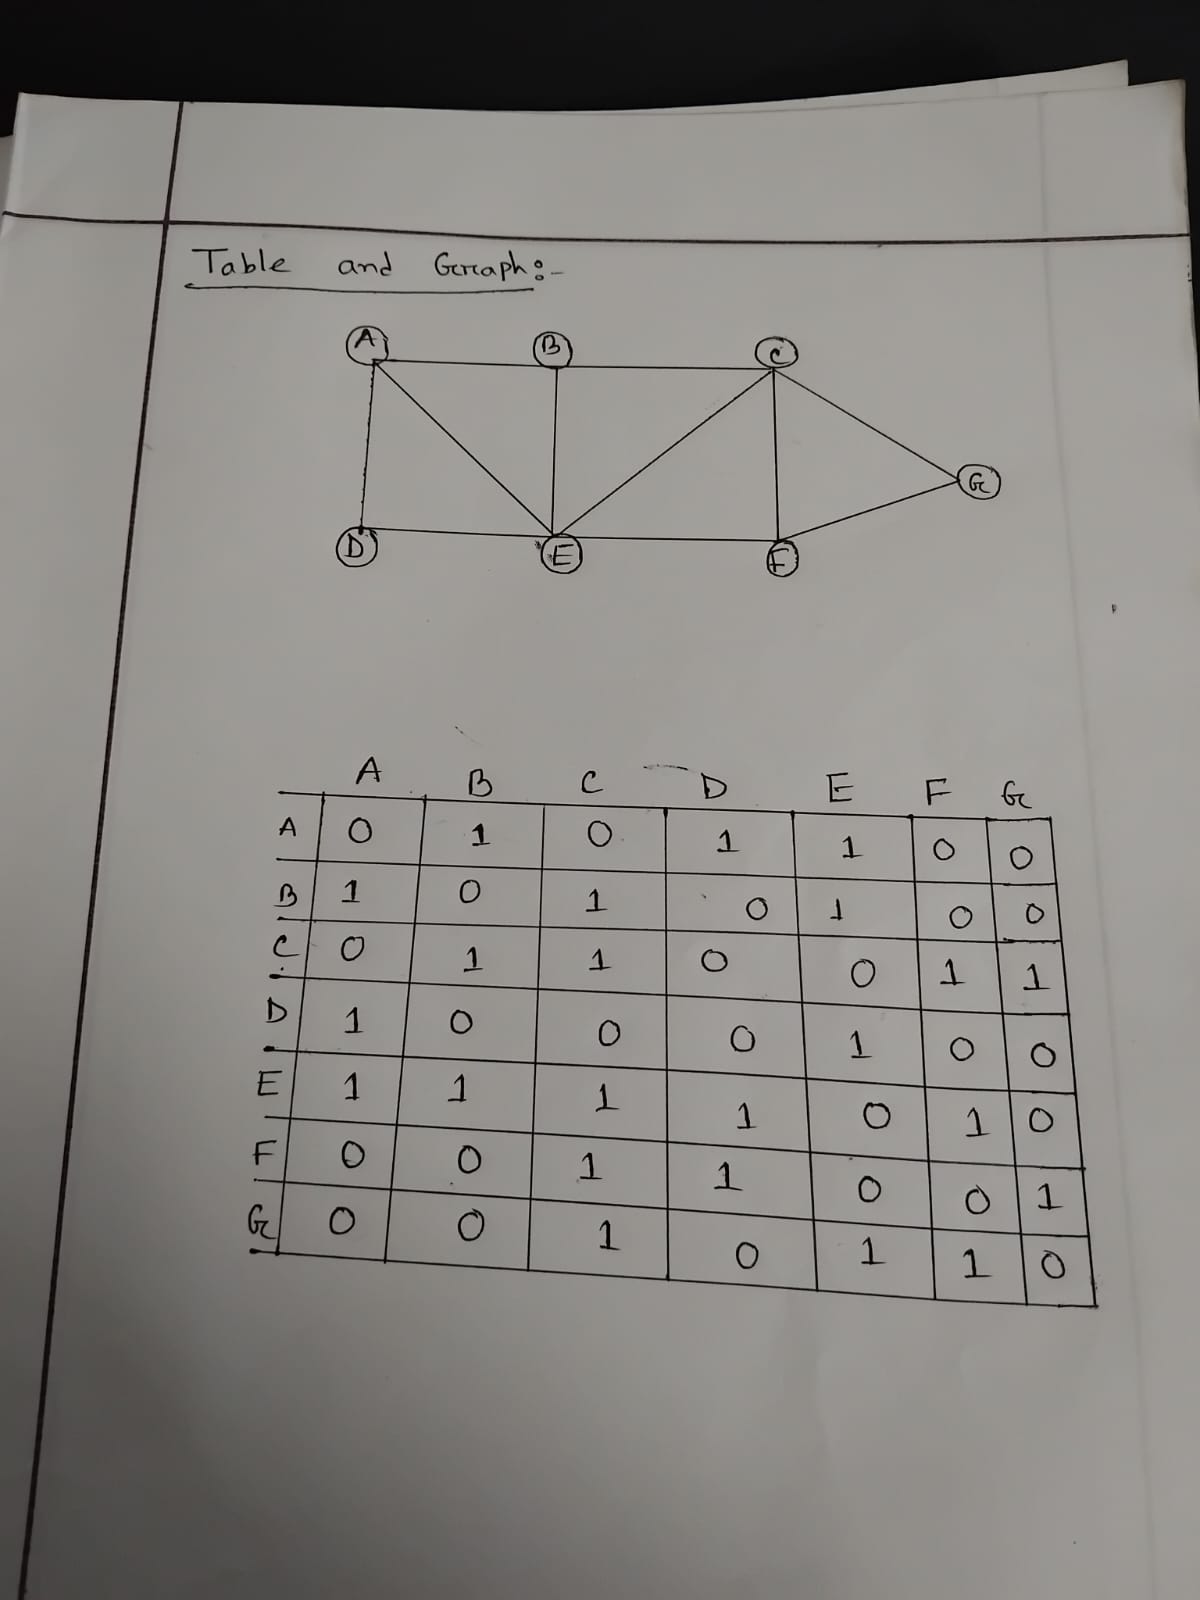 Table and Graph:-
A B C
G
D E F
A B C D E F G
A 0 1 0 1 1 0 0
B 1 0 1 0 1 0 0
C 0 1 1 0 0 1 1
D 1 0 0 0 1 0 0
E 1 1 1 1 0 1 0
F 0 0 1 1 0 0 1
G 0 0 1 0 1 1 0